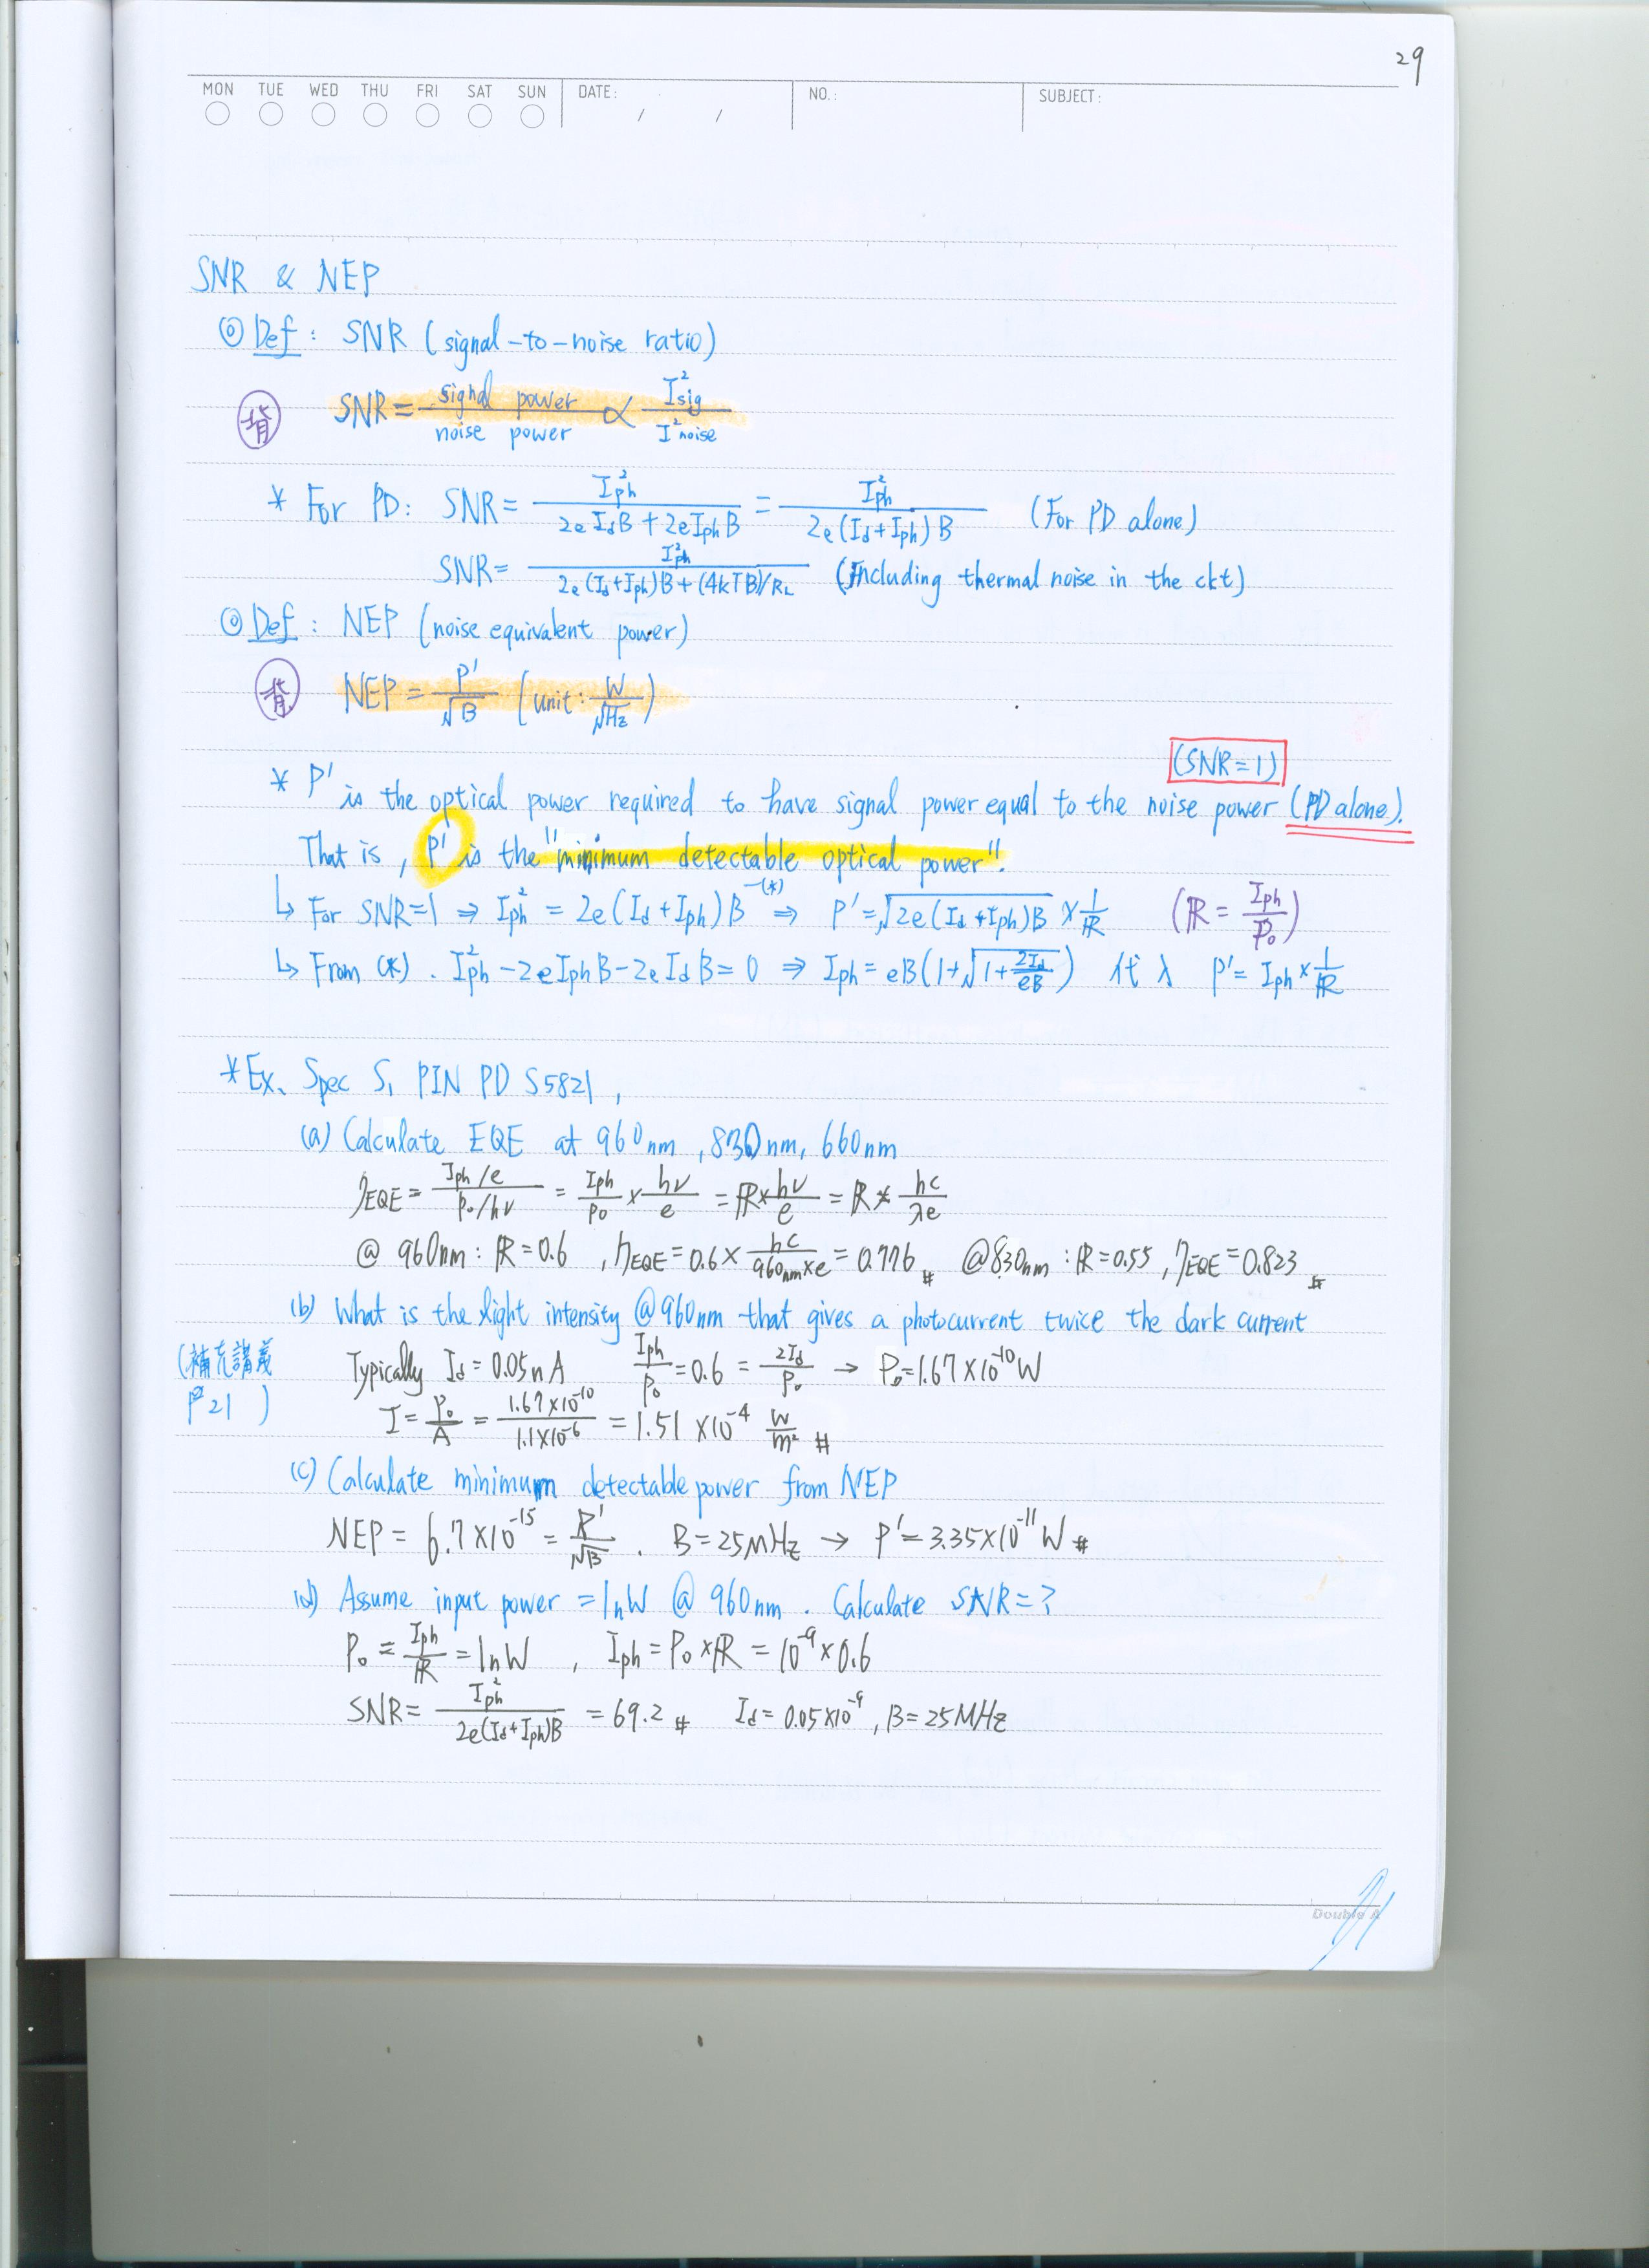 29
MON TUE WED THU FRI SAT SUN DATE: / / NO.: SUBJECT:
SNR & NEP
◎ Def: SNR (signal-to-noise ratio)
背 SNR = signal power / noise power ∝ I²sig / I²noise
* For PD: SNR = I²ph / (2eIdB + 2eIphB) = I²ph / 2e(Id+Iph)B (For PD alone)
SNR = I²ph / (2e(Id+Iph)B + (4kTB)/RL) (Including thermal noise in the ckt)
◎ Def: NEP (noise equivalent power)
背 NEP = P'/√B (unit: W/√Hz)
(SNR=1)
* P' is the optical power required to have signal power equal to the noise power (PD alone).
That is, P' is the "minimum detectable optical power".
↳ For SNR=1 ⇒ I²ph = 2e(Id+Iph)B -(*) ⇒ P' = √(2e(Id+Iph)B) × 1/ℝ (ℝ = Iph/Po)
↳ From (*). I²ph - 2eIphB - 2eIdB = 0 ⇒ Iph = eB(1+√(1+2Id/eB)) 代入 P' = Iph × 1/ℝ
*Ex. Spec Si PIN PD S5821,
(a) Calculate EQE at 960nm, 830nm, 660nm
ηEQE = (Iph/e)/(Po/hν) = Iph/Po × hν/e = ℝ × hν/e = ℝ × hc/λe
@ 960nm: ℝ=0.6, ηEQE = 0.6 × hc/(960nm×e) = 0.776 # @830nm: ℝ=0.55, ηEQE=0.823 #
(b) What is the light intensity @960nm that gives a photocurrent twice the dark current
(補充講義 Typically Id = 0.05nA Iph/Po = 0.6 = 2Id/Po → Po=1.67×10⁻¹⁰W
P21) I = Po/A = 1.67×10⁻¹⁰ / 1.1×10⁻⁶ = 1.51 ×10⁻⁴ W/m² #
(c) Calculate minimum detectable power from NEP
NEP = 6.7×10⁻¹⁵ = P'/√B. B=25MHz → P'=3.35×10⁻¹¹W #
(d) Assume input power = 1nW @ 960nm. Calculate SNR=?
Po = Iph/ℝ = 1nW, Iph = Po×ℝ = 10⁻⁹×0.6
SNR = I²ph / 2e(Id+Iph)B = 69.2 # Id = 0.05×10⁻⁹, B=25MHz
Double A